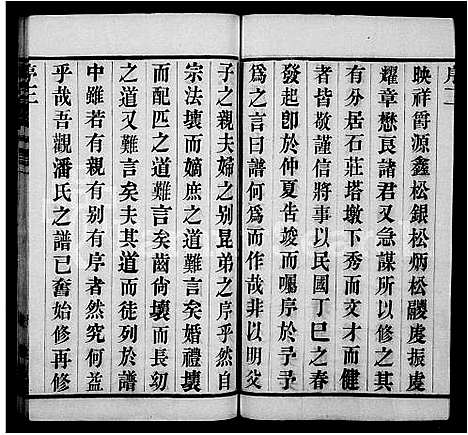 序二
映祥爵源鑫松銀松炳松酸虔振虔
耀章懋良諸君又急謀所以修之其
有分居石莊塔墩下秀而文才而健
者皆敬謹信將事以民國丁巳之春
發起卽於仲夏告竣而囑序於予予
為之言曰譜何為而作哉非以明父
子之親夫婦之別昆弟之序乎然自
宗法壞而嫡庶之道難言矣婚禮壞
而配匹之道難言矣齒尙壞而長幼
之道又難言矣夫其道而徒列於譜
中雖若有親有别有序者然究何益
乎哉吾觀潘氏之譜已奮始修再修
序三